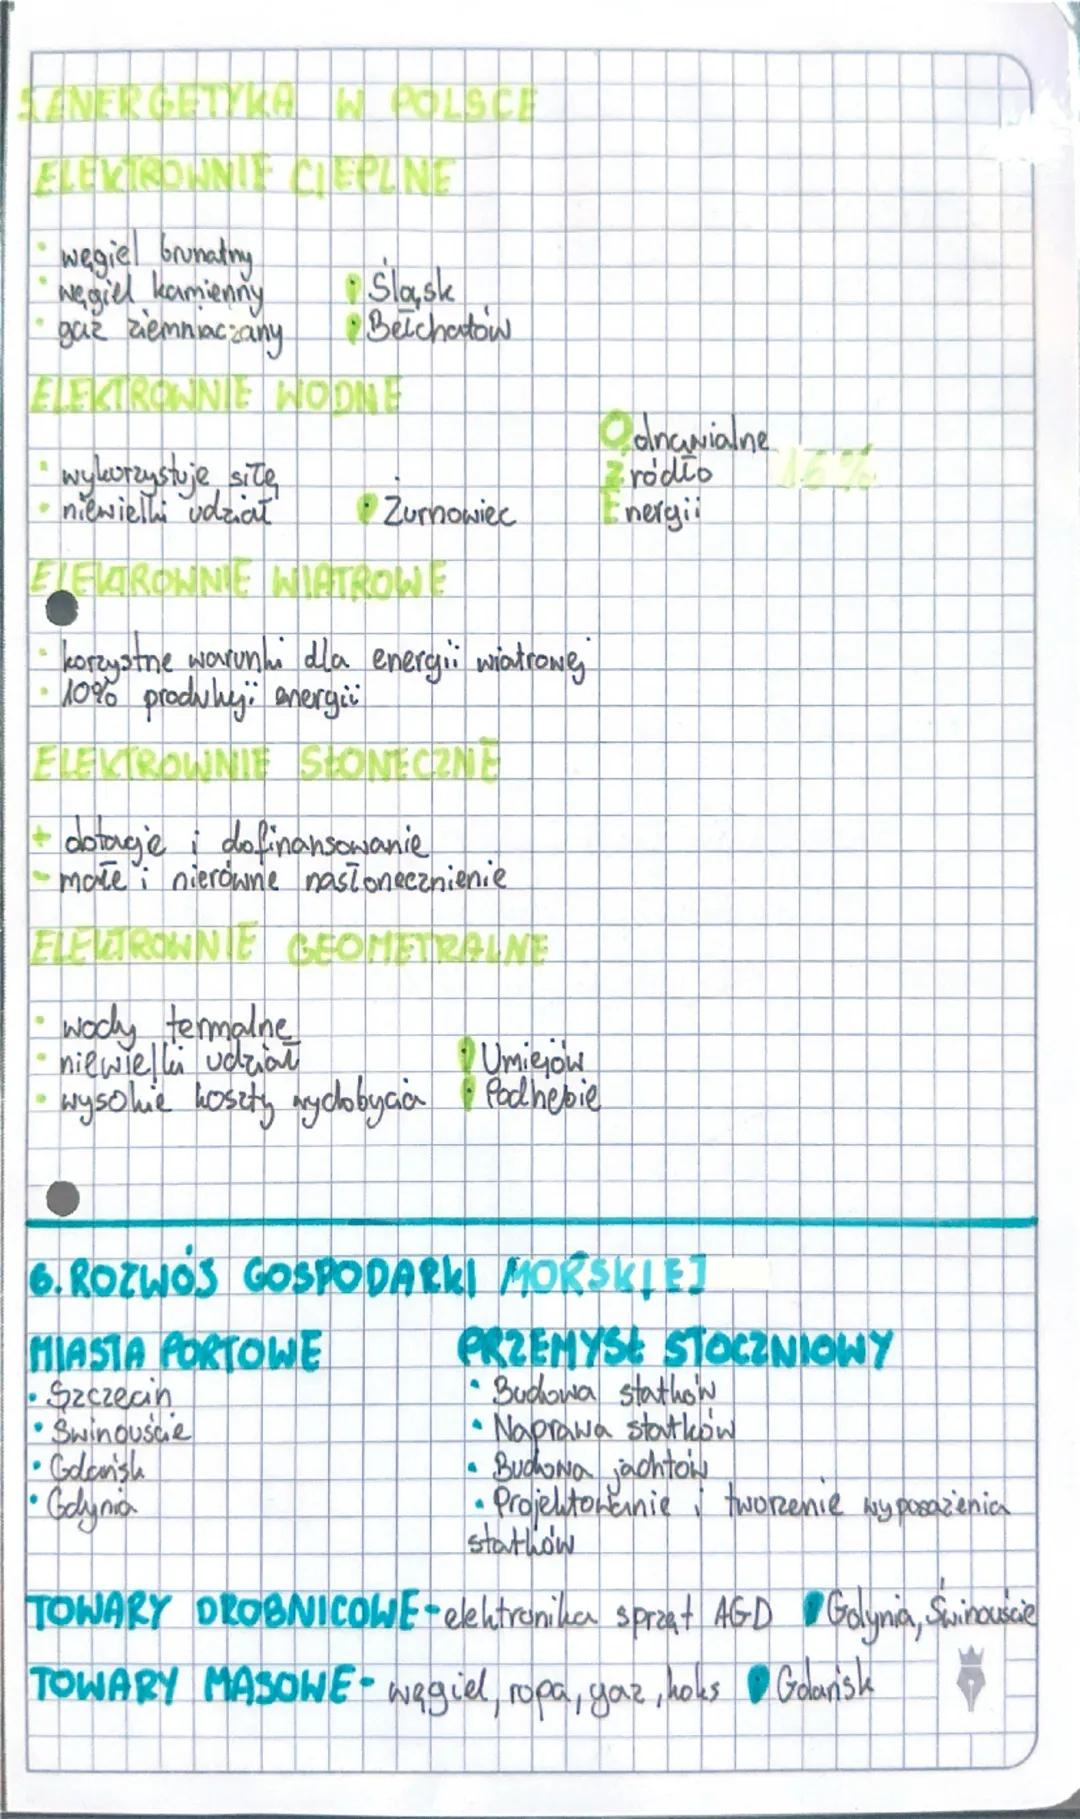 5. ENERGETYKA W POLSCE
ELEKTROWNIE CIEPLNE
• węgiel brunatny
• węgiel kamienny • Śląsk
• gaz ziemniaczany • Bełchatów
ELEKTROWNIE WODNE
Odnawialne
• wykorzystuje siłę źródło 16%
• niewielki udział • Żurnowiec Energii
ELEKTROWNIE WIATROWE
• korzystne warunki dla energii wiatrowej
• 10% produkcji energii
ELEKTROWNIE SŁONECZNE
+ dotacje i dofinansowanie
- małe i nierówne nasłonecznienie
ELEKTROWNIE GEOMETRALNE
• wody termalne
• niewielki udział • Umiejów
• wysokie koszty wydobycia • Podhebie
6. ROZWÓJ GOSPODARKI MORSKIEJ
MIASTA PORTOWE PRZEMYSŁ STOCZNIOWY
• Szczecin • Budowa statków
• Świnoujście • Naprawa statków
• Gdańsk • Budowa jachtów
• Gdynia • Projektowanie i tworzenie wyposażenia
statków
TOWARY DROBNICOWE - elektronika sprzęt AGD Gdynia, Świnoujście
TOWARY MASOWE - węgiel, ropa, gaz, koks Gdańsk